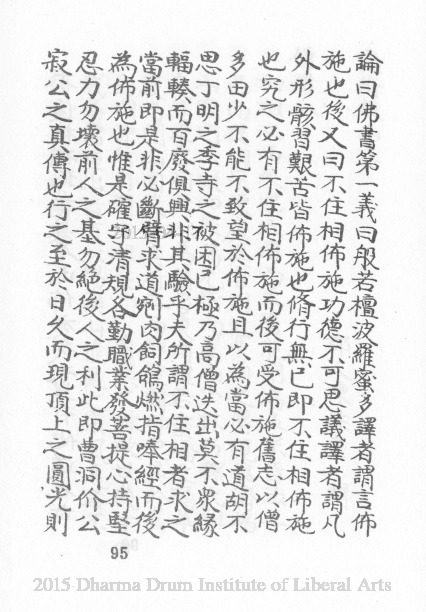 論曰佛書第一義曰般若檀波羅蜜多譯者謂言佈
施也後又曰不住相佈施功德不可思議譯者謂凡
外形骸習艱苦皆佈施也脩行無已即不住相佈施
也究之必有不住相佈施而後可受佈施舊志以僧
多田少不能不致望於佈施且以為當必有道胡不
思丁明之季寺之被困已極乃高僧迭出莫不眾緣
輻輳而百廢俱興非其驗乎夫所謂不住相者求之
當前即是非必斷臂求道剜肉飼鴿燃指唪經而後
為佈施也惟是確守清規各勤職業發菩提心持堅
忍力勿壞前人之基勿絕後人之利此即曹洞价公
寂公之真傳也行之至於日久而現頂上之圓光則
95
2015 Dharma Drum Institute of Liberal Arts